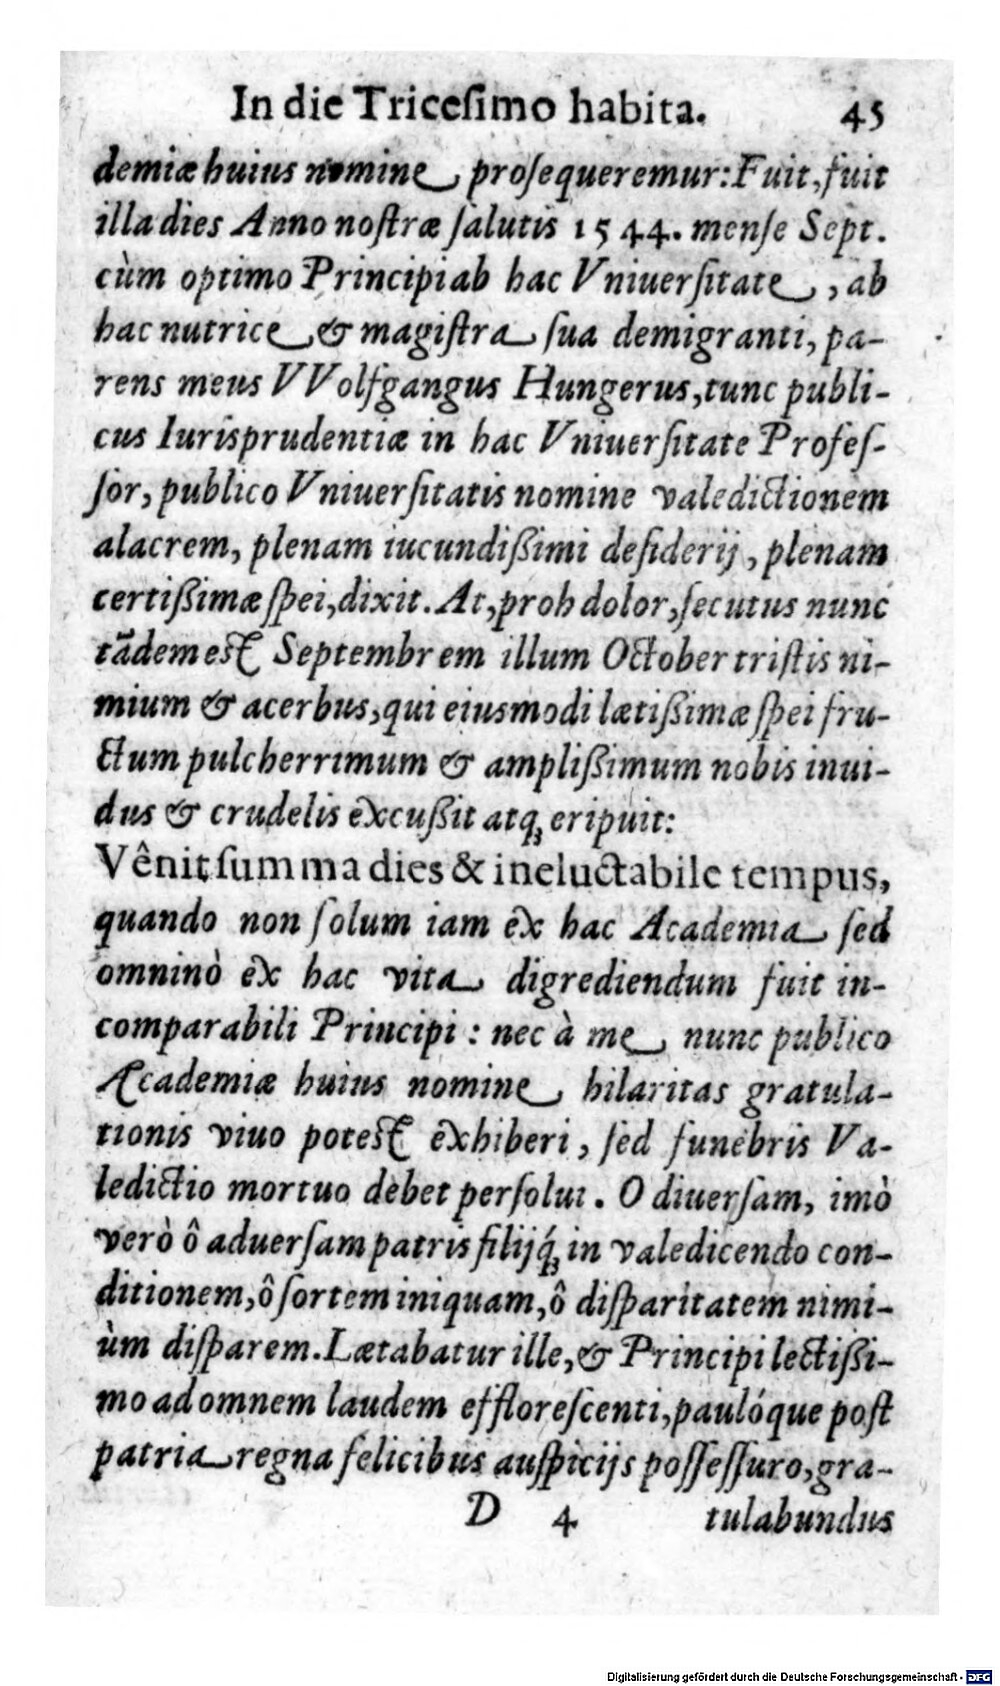 In die Tricesimo habita. 45
demiæ huius nomine prosequeremur: Fuit, fuit
illa dies Anno nostræ salutis 1544. mense Sept.
cùm optimo Principi ab hac Vniuersitate, ab
hac nutrice & magistra sua demigranti, pa-
rens meus VVolfgangus Hungerus, tunc publi-
cus Iurisprudentiæ in hac Vniuersitate Profes-
sor, publico Vniuersitatis nomine valedictionem
alacrem, plenam iucundißimi desiderij, plenam
certißimæ spei, dixit. At, proh dolor, secutus nunc
tādem est Septembrem illum October tristis ni-
mium & acerbus, qui eiusmodi lætißimæ spei fru-
ctum pulcherrimum & amplißimum nobis inui-
dus & crudelis excußit atq; eripuit:
Vênit summa dies & ineluctabile tempus,
quando non solum iam ex hac Academia sed
omninò ex hac vita digrediendum fuit in-
comparabili Principi: nec à me nunc publico
Academiæ huius nomine hilaritas gratula-
tionis viuo potest exhiberi, sed funebris Va-
ledictio mortuo debet persolui. O diuersam, imò
verò ô aduersam patris filijq́; in valedicendo con-
ditionem, ô sortem iniquam, ô disparitatem nimi-
ùm disparem. Lætabatur ille, & Principi lectißi-
mo ad omnem laudem efflorescenti, paulóque post
patria regna felicibus auspicijs possessuro, gra-
D 4 tulabundus
Digitalisierung gefördert durch die Deutsche Forschungsgemeinschaft - DFG